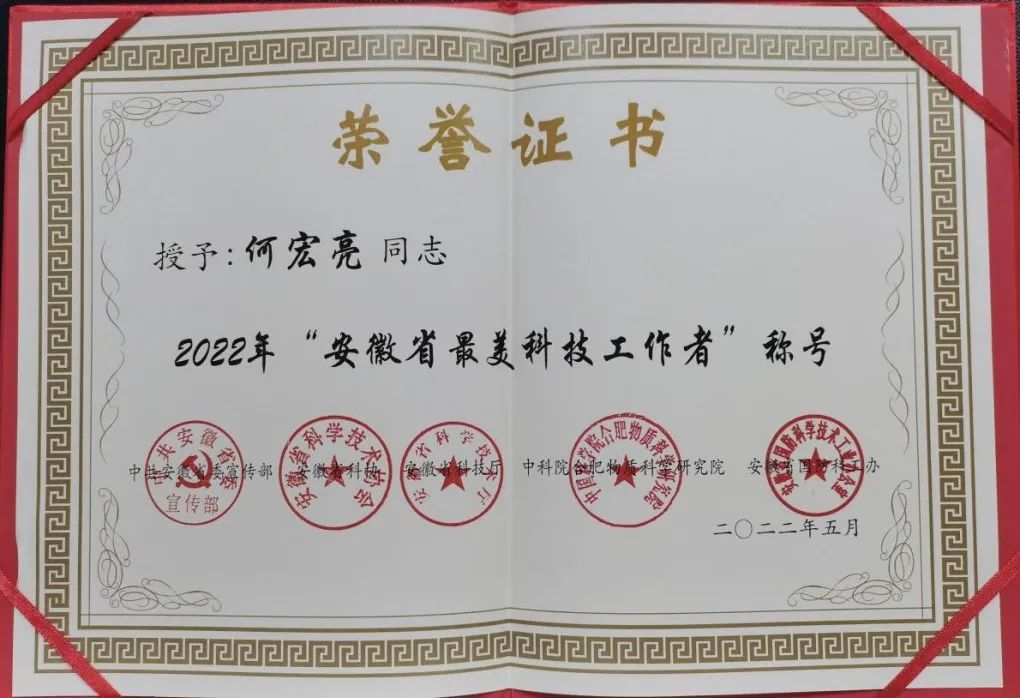 荣誉证书
授予：何宏亮 同志
2022年“安徽省最美科技工作者”称号
中共安徽省委宣传部 安徽省科协 安徽省科技厅 中科院合肥物质科学研究院 安徽省国防科工办
中共安徽省委
宣传部
安徽省科学技术协会
安徽省科学技术厅
中国科学院合肥物质科学研究院
安徽省国防科学技术工业办公室
二〇二二年五月